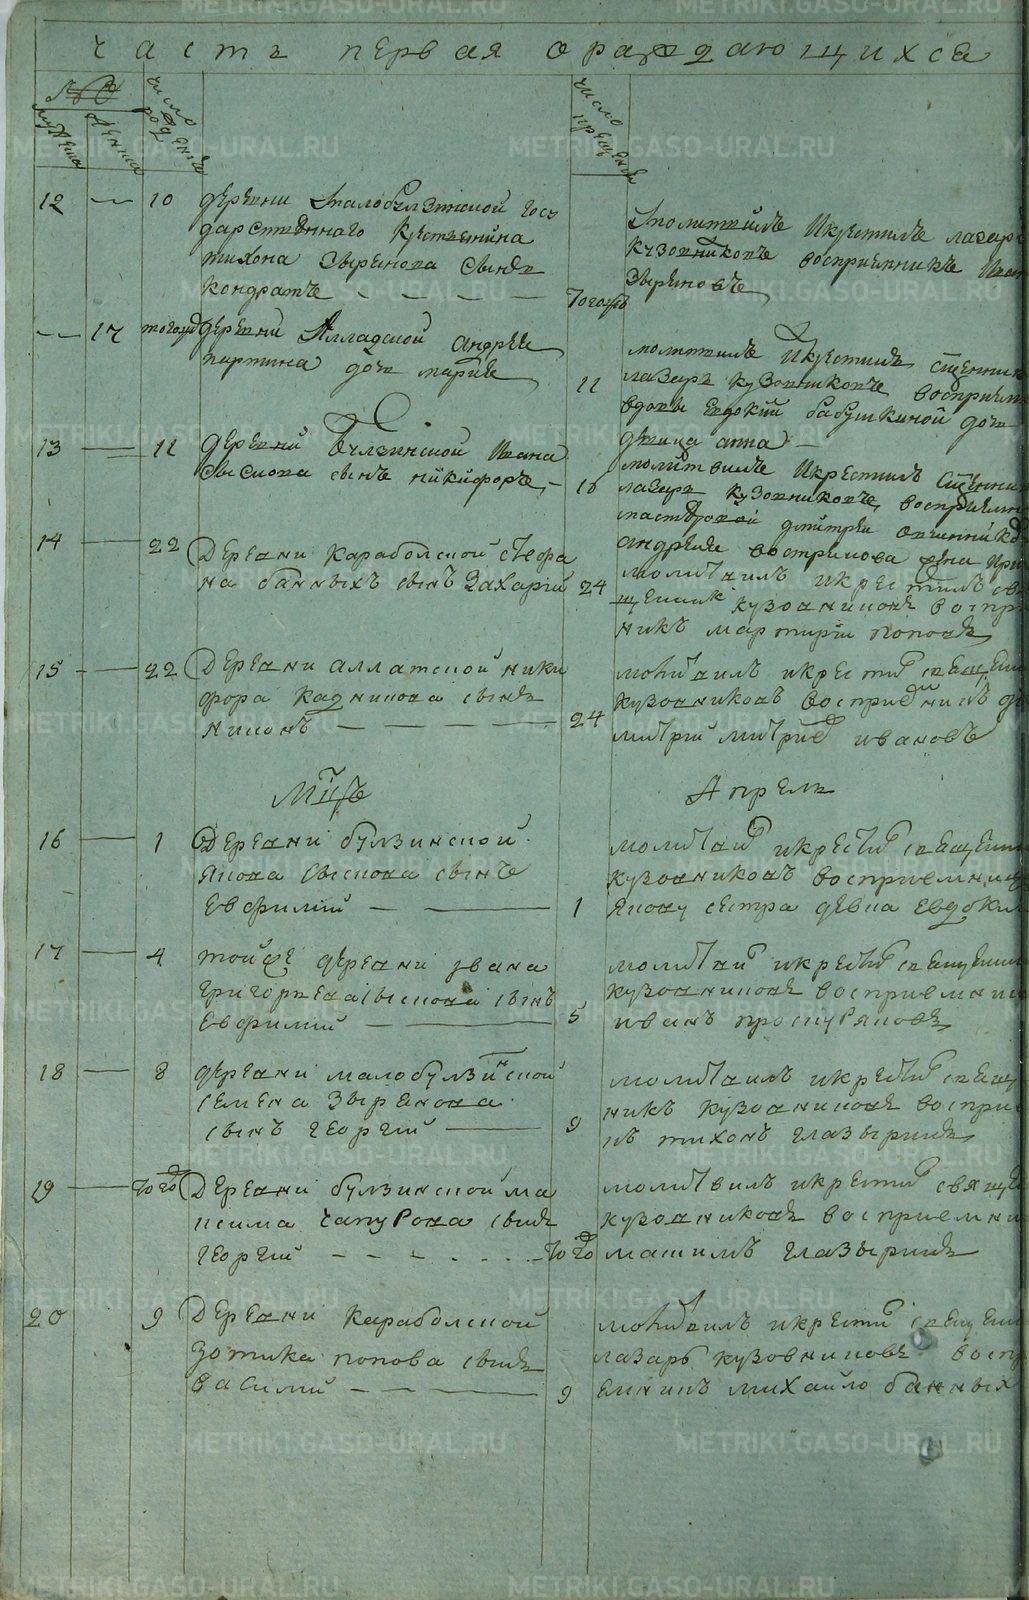 часть первая ораждающихся
№
мужеска
женска
число рожденія
число крещенія
12 — 10 деревни Малобулзинской госу
дарственнаго крестьянина
тихона Зырянова сынъ
Кондратъ
того
молитвилъ Икрестилъ лазарь
кузовниковъ восприемникъ Иван
Зыряновъ
17 того деревни Аллацкой андрея
партина дочь мария
11
молитвилъ Икрестилъ сщенник
лазарь кузовниковъ восприемн
вдовы Евдокии бабушкиной дочь
девица анна
13 — 11 деревни булзинской Ивана
сыскова сынъ никифоръ
молитвилъ Икрестилъ сщенник
лазарь кузовниковъ восприемн
дмитрея
андреяна вострикова жена
14 — 22 Деревни караболской
на банныхъ сынъ Захарий 24
молитвилъ икрестилъ св
щенникъ кузовниковъ воспри
никъ мартирий поповъ
15 — 22 Деревни аллатской ники
фора кадникова сынъ
Никонъ 24
молитвилъ икрестил священ
кузовниковъ восприемникъ д
митрий ивановъ
Мцъ Апрель
16 — 1 Деревни булзинской
якова сыскова сынъ
Евфимий — 1
молитвил икрестил священ
кузовниковъ восприемница
якову сестра девка Евдоким
17 — 4 тойже деревни ивана
григорьева сыскова сынъ
Евфимий — 5
молитвил икрестил священн
кузовниковъ восприемник
иванъ проскуряковъ
18 — 8 деревни малобулзинской
семена Зырянова
сынъ георгий — 9
молитвилъ икрестил свящ
никъ кузовниковъ воспри
къ тихонъ глазыринъ
19 — того Деревни булзинской ма
ксима чапурова сынъ
георгий того
молитвилъ икрестил свяще
кузовниковъ восприемни
максимъ глазыринъ
20 9 Деревни караболской
Зотика попова сынъ
василий — 9
молитвилъ икрестил священ
лазарь кузовниковъ воспр
емникъ михайло банных
METRIKI.GASO-URAL.RU